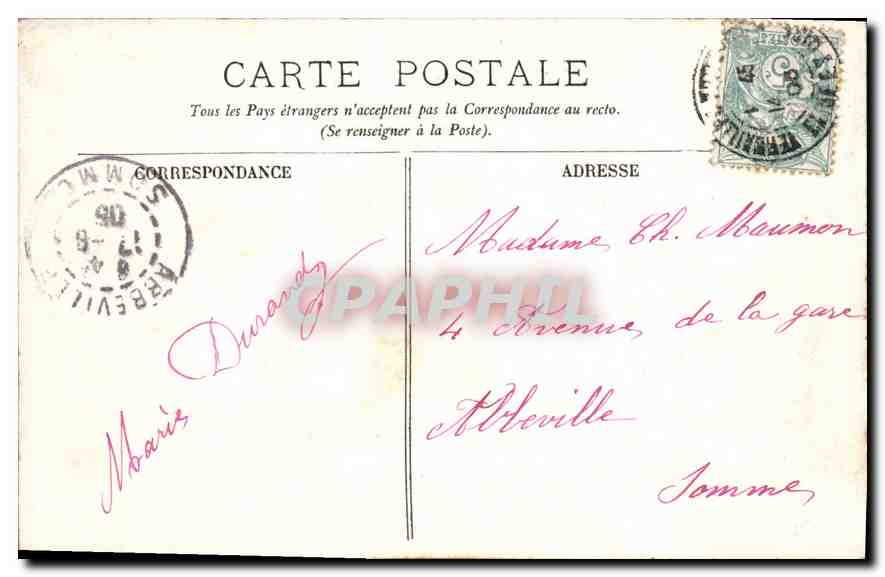 CARTE POSTALE
Tous les Pays étrangers n'acceptent pas la Correspondance au recto.
(Se renseigner à la Poste).
CORRESPONDANCE
ADRESSE
ABBEVILLE
SOMME
17 -8
06
Marie Durand
CPAPHIL
Madame Ch. Maumon
4 Avenue de la gare
Abbeville
Somme
POSTES
5